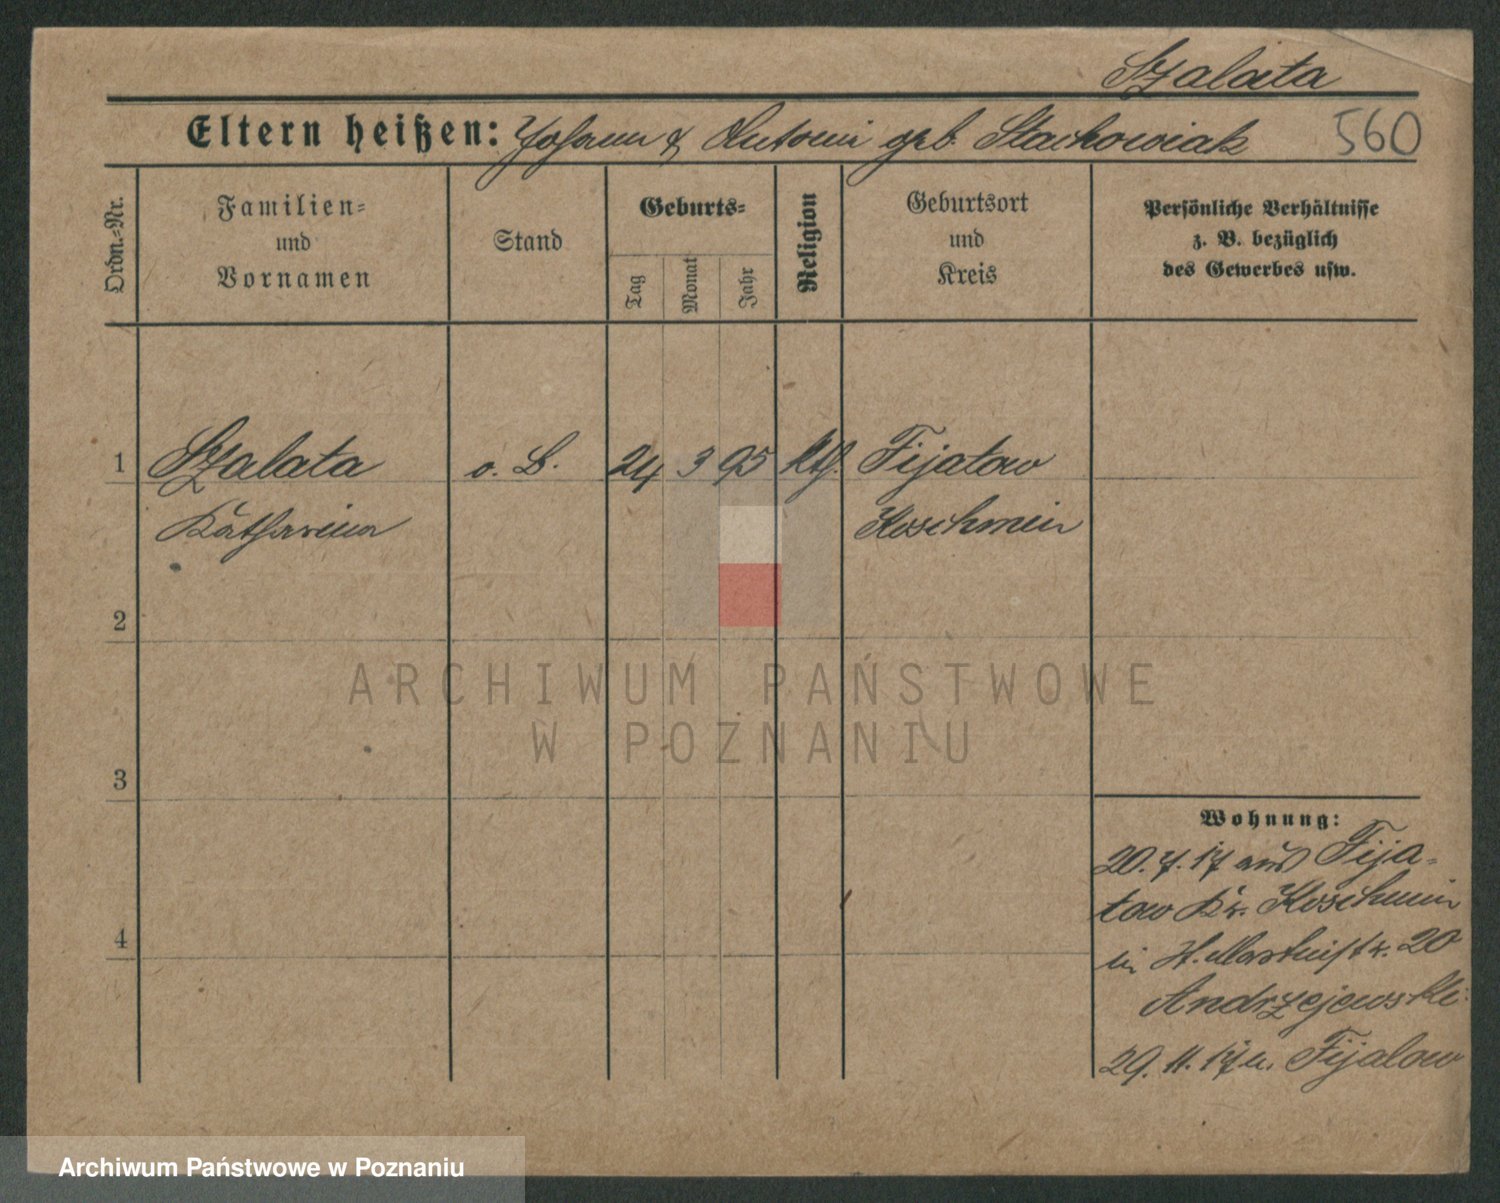 Szalata
Eltern heißen: Johann & Antonie geb. Stachowiak
560
Ordn.=Nr.
Familien=
und
Vornamen
Stand
Geburts=
Tag
Monat
Jahr
Religion
Geburtsort
und
Kreis
Persönliche Verhältnisse
z. B. bezüglich
des Gewerbes usw.
1 Szalata o. B. 24 3 95 kth. Fijatow
Katharina Koschmin
2
3
4
Wohnung:
20. 7. 17 aus Fija=
tow Kr. Koschmin
in 20
Andrzejewski
29. 11. 17 n. Fijalow
ARCHIWUM PAŃSTWOWE
W POZNANIU
Archiwum Państwowe w Poznaniu